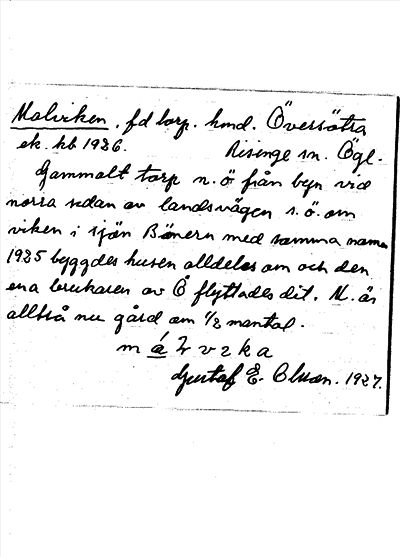 Malviken. fd torp. hmd. Översätra
ek. kb 1926. Risinge sn. Ögl.
Gammalt torp n. ö från byn vid
norra sidan av landsvägen s. ö. om
viken i sjön Bönern med samma namn
1925 byggdes husen alldeles om och den
ena brukaren av Ö flyttades dit. M. är
alltså nu gård om 1/2 mantal.
Gustaf E. Olsson. 1927.